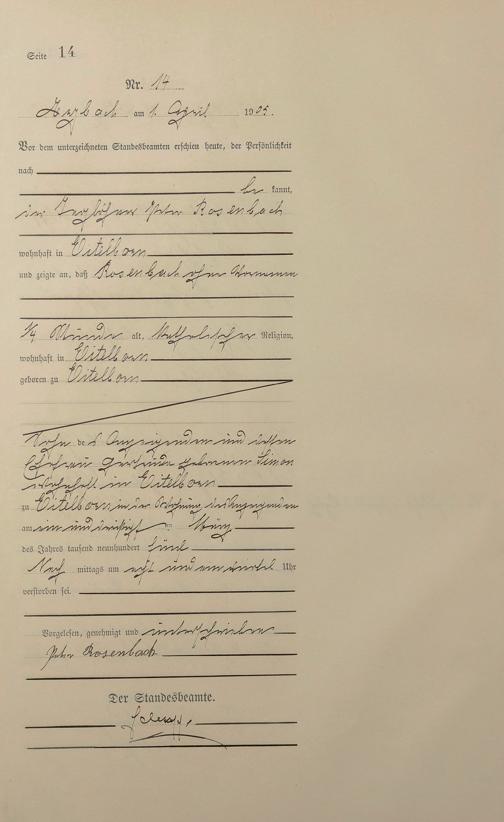 Seite 14
Nr. 14
Arzbach am 1. April 1905.
Vor dem unterzeichneten Standesbeamten erschien heute, der Persönlichkeit
nach
be kannt,
der Taglöhner Peter Rosenbach
wohnhaft in Eitelborn
und zeigte an, daß Rosenbach ohne Vornamen
1/4 Stunde alt, katholischer Religion,
wohnhaft in Eitelborn
geboren zu Eitelborn
Sohn des Anzeigenden und dessen
Ehefrau geborenen Simon
wohnhaft in Eitelborn
zu Eitelborn in der Wohnung des Anzeigenden
am ein und dreißigsten März
des Jahres tausend neunhundert fünf
Nach mittags um acht und ein viertel Uhr
verstorben sei.
Vorgelesen, genehmigt und unterschrieben
Peter Rosenbach
Der Standesbeamte.